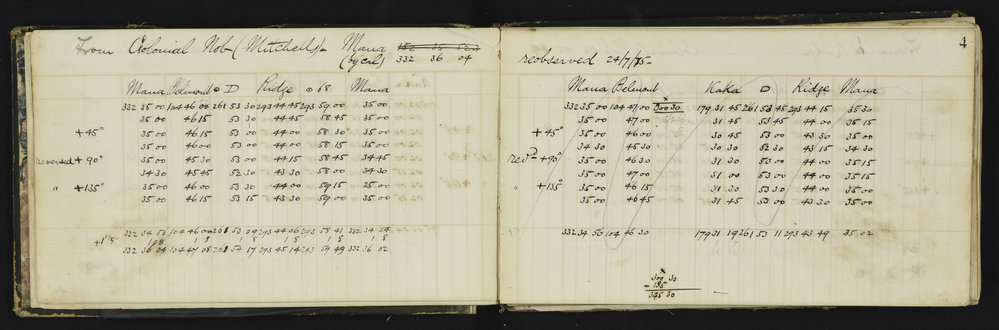 From Colonial Nob (Mitchells) - Mana 152 36 52.3
(by cal) 332 36 04
Mana Belmont D Ridge 68 Mana
332 35 00 104 46 00 261 53 30 293 44 45 293 59 00 35 00
35 00 46 15 53 30 44 45 58 45 35 00
+45° 35 00 46 15 53 00 44 00 58 30 35 00
35 00 46 00 53 00 44 00 58 15 35 00
reversed +90° 35 00 45 30 53 00 44 15 58 45 34 45
34 30 45 45 52 30 43 30 58 00 34 30
" +135° 35 00 46 00 53 30 44 00 59 15 35 00
35 00 46 15 53 15 43 30 59 00 35 00
332 34 53 104 46 00 261 53 09 293 44 06 293 58 41 332 34 54
+1' 8" 1 8 1 8 1 8 1 8
332 36 04 104 47 08 261 54 17 293 45 14 293 59 49 332 36 02
4
reobserved 24/7/75 -
Mana Belmont Kaka D Ridge Mana
332 35 00 104 47 00 300 30 179 31 45 261 53 45 293 44 15 35 30
35 00 47 00 31 45 53 45 44 00 35 15
+45° 35 00 46 00 30 45 53 00 43 30 35 00
34 30 45 30 30 30 52 30 43 15 34 30
revd +90° 35 00 46 30 31 30 53 00 44 00 35 15
35 00 47 00 31 00 53 00 44 00 35 15
" +135° 35 00 46 15 31 30 53 30 44 00 35 00
35 00 46 45 31 45 53 00 43 30 35 00
332 34 56 104 46 30 179 31 19 261 53 11 293 43 49 35 02
x
300 30
- 135
345 30